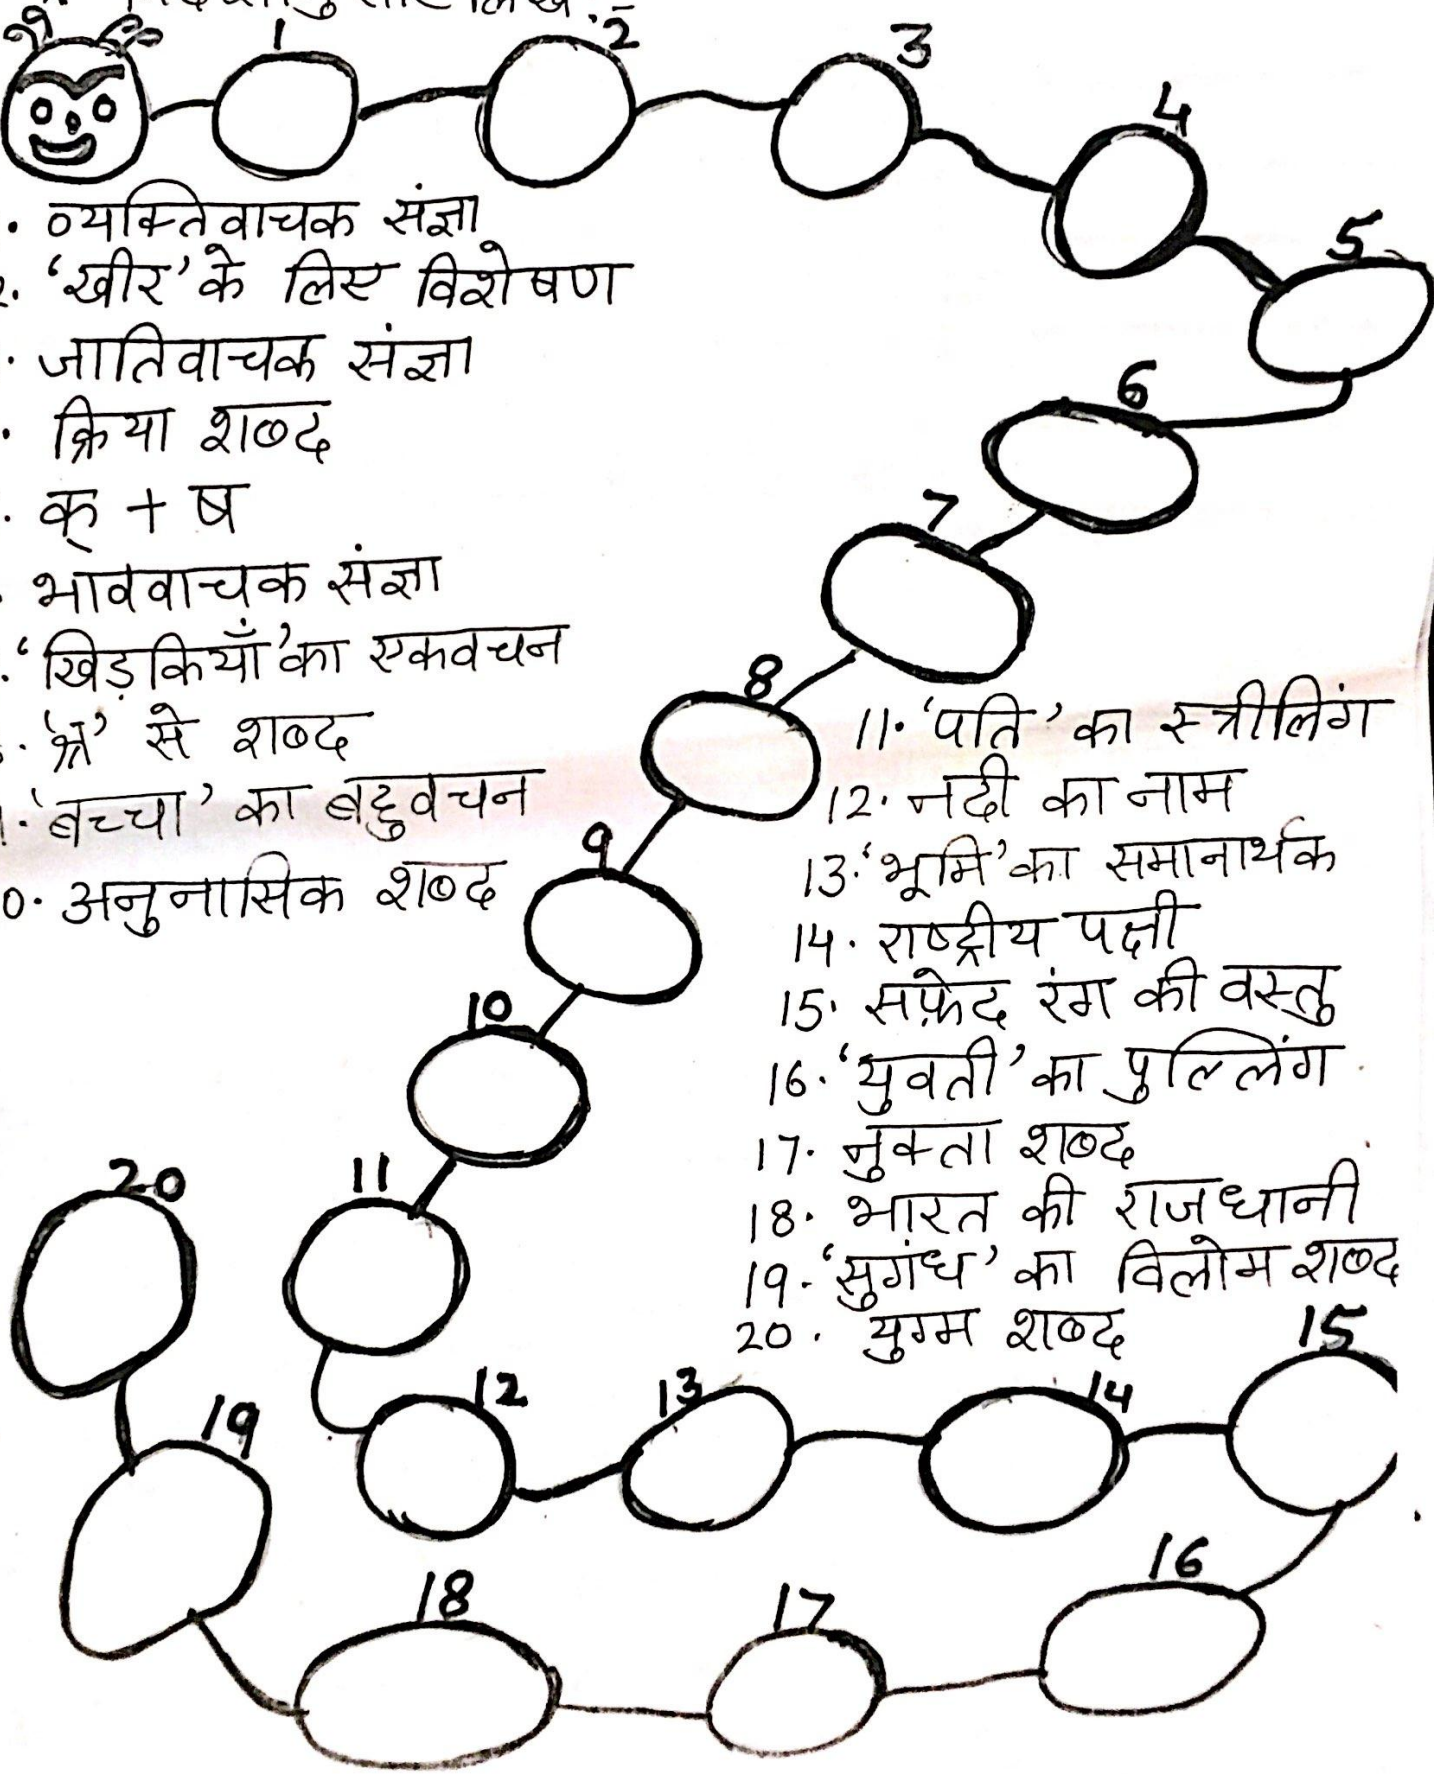 1
2
3
4
5
6
7
8
9
10
11
12
13
14
15
16
17
18
19
20
· व्यक्तिवाचक संज्ञा
२. ‘खीर’ के लिए विशेषण
· जातिवाचक संज्ञा
· क्रिया शब्द
· क् + ष
· भाववाचक संज्ञा
· ‘खिड़कियाँ’ का एकवचन
· ‘श्र’ से शब्द
· ‘बच्चा’ का बहुवचन
0. अनुनासिक शब्द
11. ‘पति’ का स्त्रीलिंग
12. नदी का नाम
13. ‘भूमि’ का समानार्थक
14. राष्ट्रीय पक्षी
15. सफ़ेद रंग की वस्तु
16. ‘युवती’ का पुल्लिंग
17. नुक्ता शब्द
18. भारत की राजधानी
19. ‘सुगंध’ का विलोम शब्द
20. युग्म शब्द